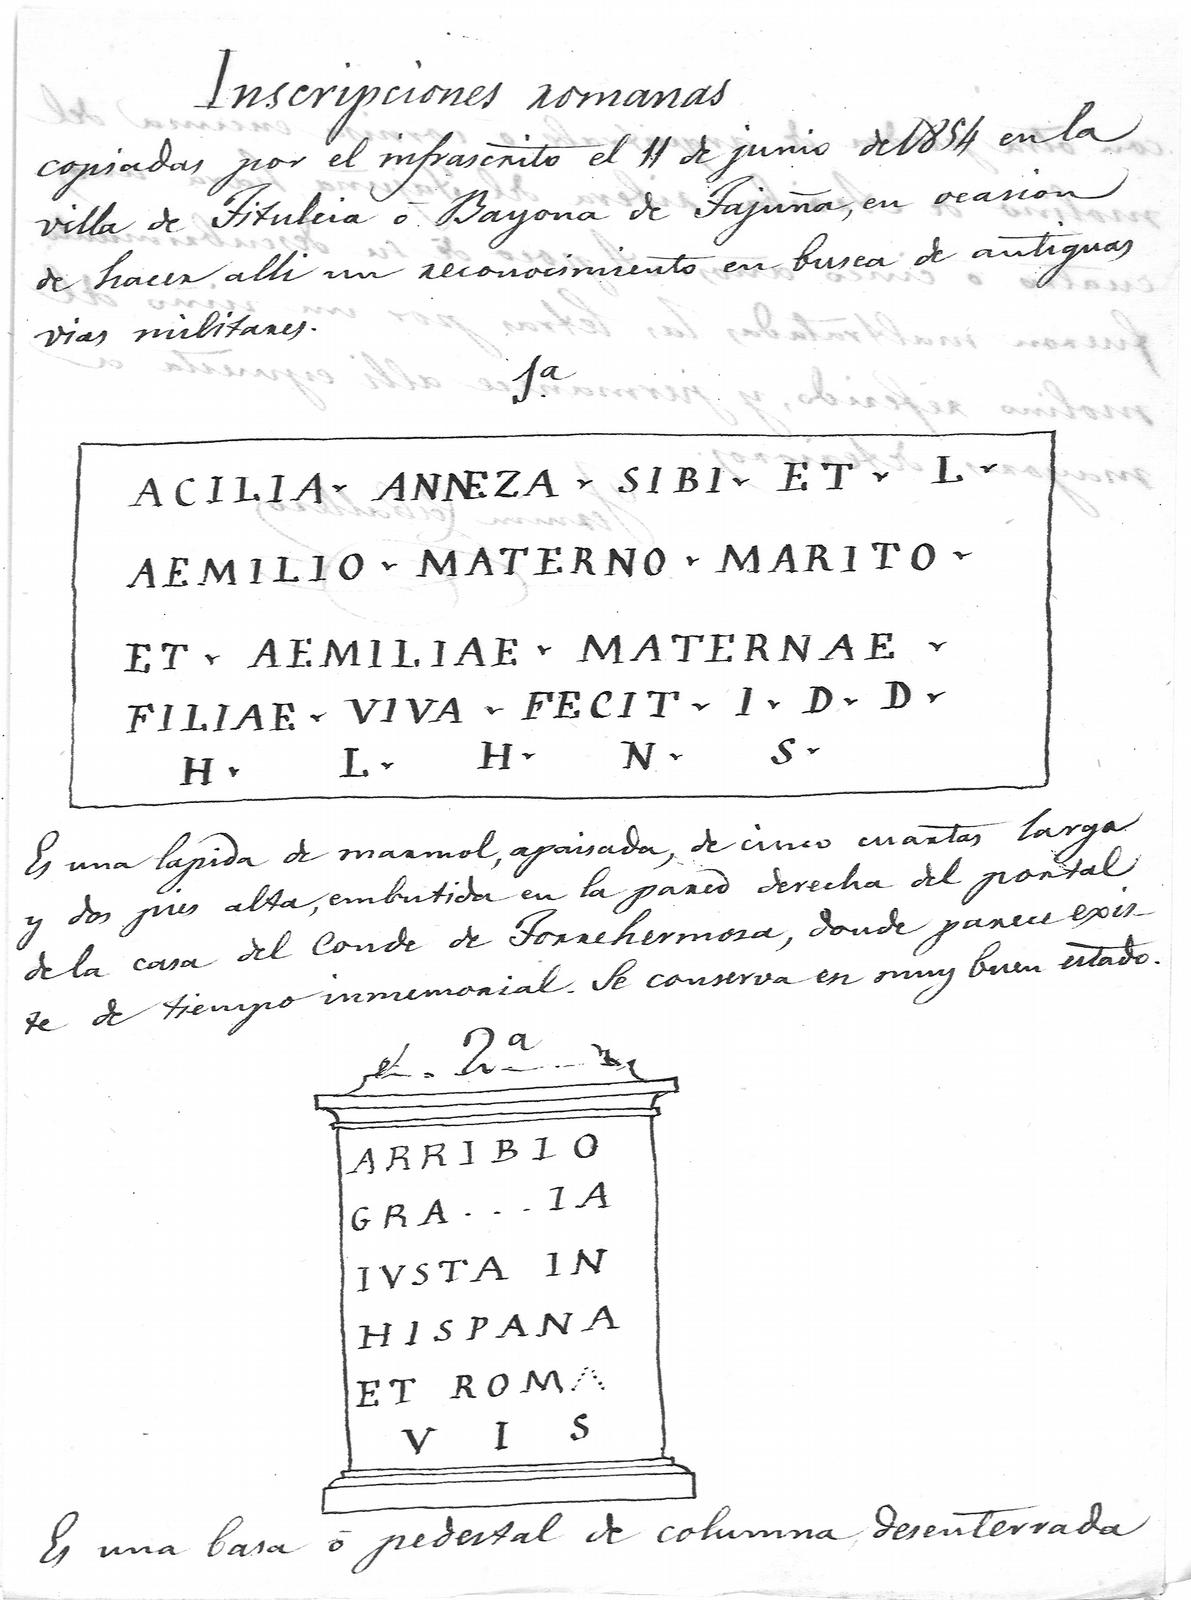 Inscripciones romanas
copiadas por el infrascrito el 11 de junio de 1854 en la
villa de Tituleia ó Bayona de Tajuña, en ocasion
de hacer alli un reconocimiento en busca de antiguas
vias militares.
1ª
ACILIA ANNEZA SIBI ET L
AEMILIO MATERNO MARITO
ET AEMILIAE MATERNAE
FILIAE VIVA FECIT I D D
H L H N S
Es una lapida de marmol, apaisada, de cinco cuartas larga
y dos pies alta, embutida en la pared derecha del portal
de la casa del Conde de Torrehermosa, donde parece exis-
te de tiempo inmemorial. Se conserva en muy buen estado.
2ª
ARRIBIO
GRA...IA
IVSTA IN
HISPANA
ET ROMA
V I S
Es una basa ó pedestal de columna desenterrada